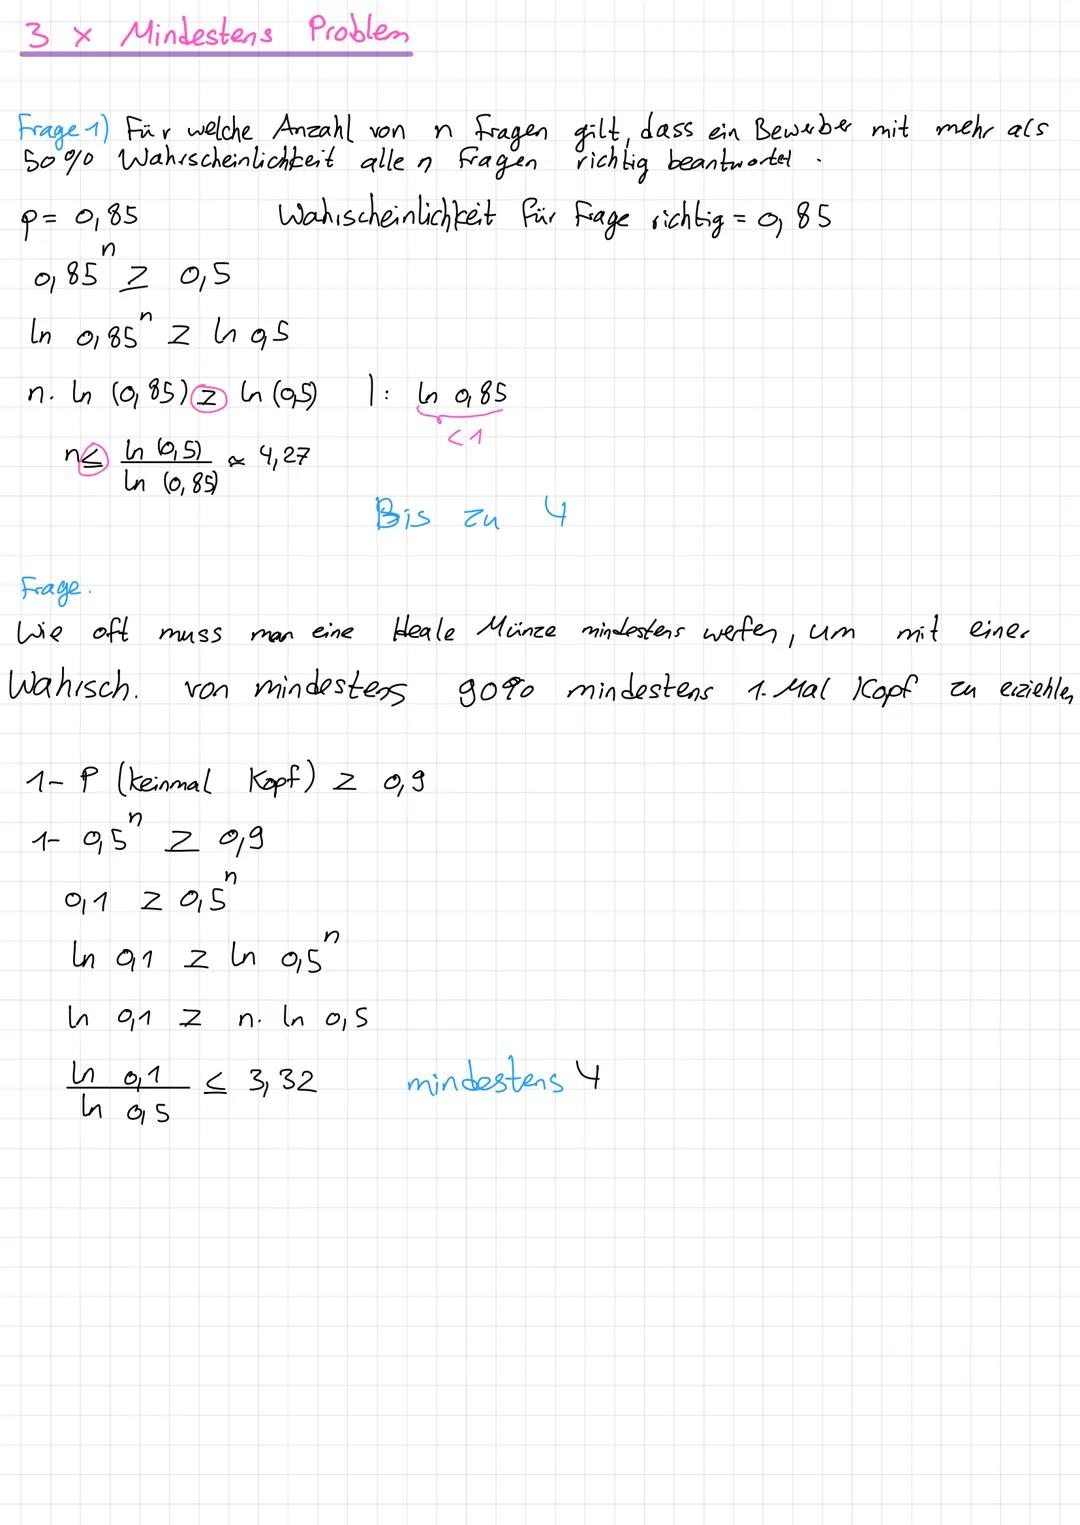 3 x Mindestens Problem
Frage 1) Für welche Anzahl von n Fragen gilt, dass ein Bewerber mit mehr als
50% Wahrscheinlichkeit alle n Fragen richtig beantwortet.
p = 0,85 Wahrscheinlichkeit für Frage richtig = 0,85
0,85^n ≥ 0,5
ln 0,85^n ≥ ln 0,5
n · ln (0,85) ≥ ln (0,5) | : ln 0,85
<1
n ≤ ln (0,5) / ln (0,85) ≈ 4,27
Bis zu 4
Frage.
Wie oft muss man eine Ideale Münze mindestens werfen, um mit einer
Wahrsch. von mindestens 90% mindestens 1. Mal Kopf zu erziehlen
1 - P (keinmal Kopf) ≥ 0,9
1 - 0,5^n ≥ 0,9
0,1 ≥ 0,5^n
ln 0,1 ≥ ln 0,5^n
ln 0,1 ≥ n · ln 0,5
ln 0,1 / ln 0,5 ≤ 3,32 mindestens 4